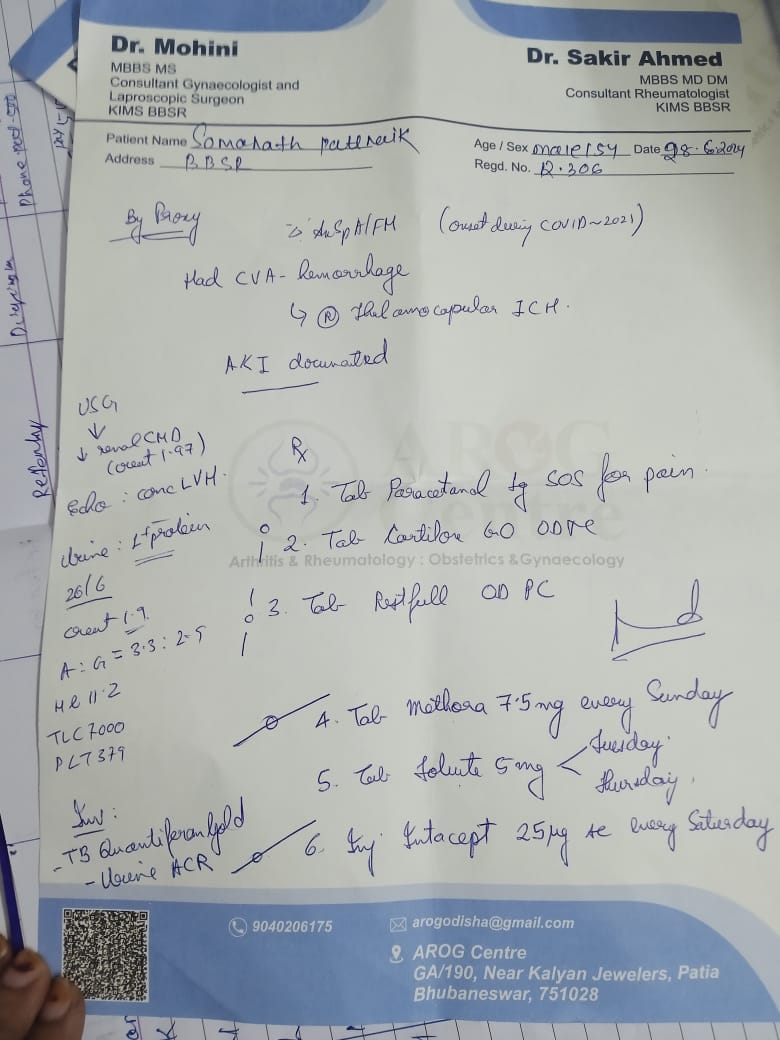 Dr. Mohini
MBBS MS
Consultant Gynaecologist and
Laproscopic Surgeon
KIMS BBSR
Dr. Sakir Ahmed
MBBS MD DM
Consultant Rheumatologist
KIMS BBSR
Patient Name Somanath pattnaik
Address BBSR
Age / Sex male/54 Date 28.6.2024
Regd. No. R.306
By Proxy
AxSpA/FM (onset during COVID~2021)
Had CVA - hemorrhage
↳ Ⓡ Thalamocapsular ICH.
AKI documented
USG
↓
↓ renal CMD
(creat 1.97)
Echo : conc LVH.
Urine : 1+ protein
26/6
creat 1.9
A:G = 3.3 : 2.5
11.2
TLC 7000
PLT 379
Inv :
- TB Quantiferon Gold
- Urine ACR
AROG
Centre
Arthritis & Rheumatology : Obstetrics &Gynaecology
Rx
1. Tab Paracetamol 1g SOS for pain.
2. Tab Cartilox 60
3. Tab Restfull OD PC
4. Tab Methora 7.5 mg every Sunday
5. Tab Folute 5 mg < Tuesday.
Thursday.
6. Inj Intacept 25 sc every Saturday
9040206175
arogodisha@gmail.com
AROG Centre
GA/190, Near Kalyan Jewelers, Patia
Bhubaneswar, 751028